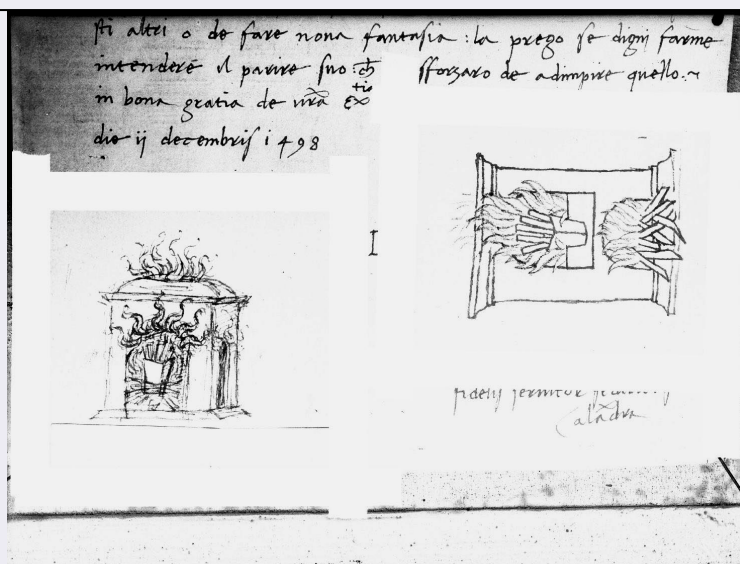 sti altri o de fare nova fantasia : la prego se digni farme
intendere il parire suo : ch sforzaro de adimpire quello .~
in bona gratia de vra Ex tia
die ij decembris 1498
fidelis servitor
Caladra